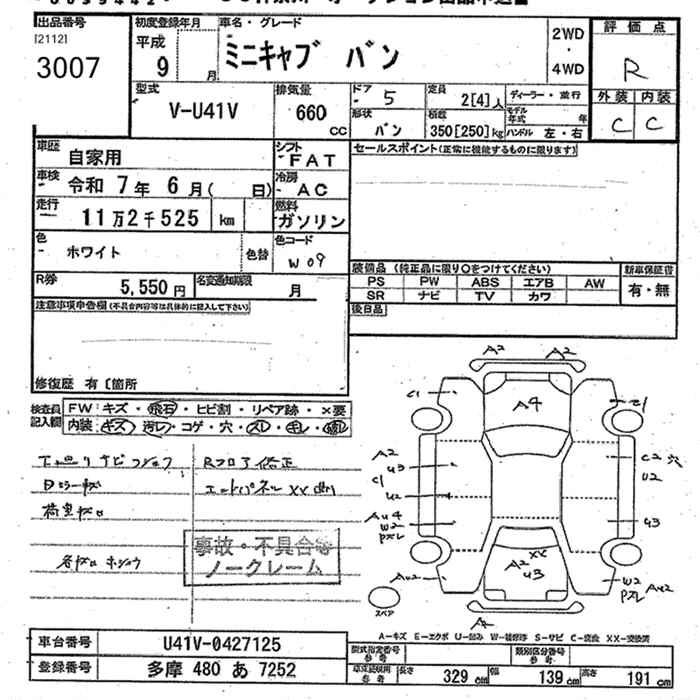 出品番号
[2112]
3007
初度登録年月
平成
9 月
車名・グレード
ミニキャブ バン
2WD
・
4WD
評価点
R
外装 内装
C C
型式
V-U41V
排気量
660
cc
ドア
5
形状
バン
定員
2[4]人
積数
350[250]kg
ディーラー・並行
モデル年式 年
ハンドル 左・右
車歴
自家用
シフト
FAT
車検
令和 7年 6月( 日)
冷房
AC
走行
11万2千525 km
燃料
ガソリン
色
ホワイト
色替
色コード
W09
R券
5,550円
名変通知期限
月
セールスポイント(正常に機能するものに限ります)
装備品 (純正品に限り○をつけてください)
PS PW ABS エアB AW
SR ナビ TV カワ
新車保証書
有・無
後日品
注意事項申告欄(不具合内容等は具体的に記入して下さい)
修復歴 有〔箇所
検査員
記入欄
FW キズ・飛石・ヒビ割・リペア跡・×要
内装 キズ・汚レ・コゲ・穴・スレ・キレ
Rフロア修正
エンドパネルXX
事故・不具合等
ノークレーム
A2 A2
C1
A4
C1
A2
U3
C1
U2
AU4
W2
AU2
C2 穴
U2
U3
XX
A2
U3
W2
AU2
A2
スペア
A-キズ E-エクボ U-凹み W-補修跡 S-サビ C-腐蝕 XX-交換済
車台番号
U41V-0427125
登録番号
多摩 480 あ 7252
型式指定番号
参考
類別区分番号
参考
参考
長さ 329 cm 幅 139 cm 高さ 191 cm